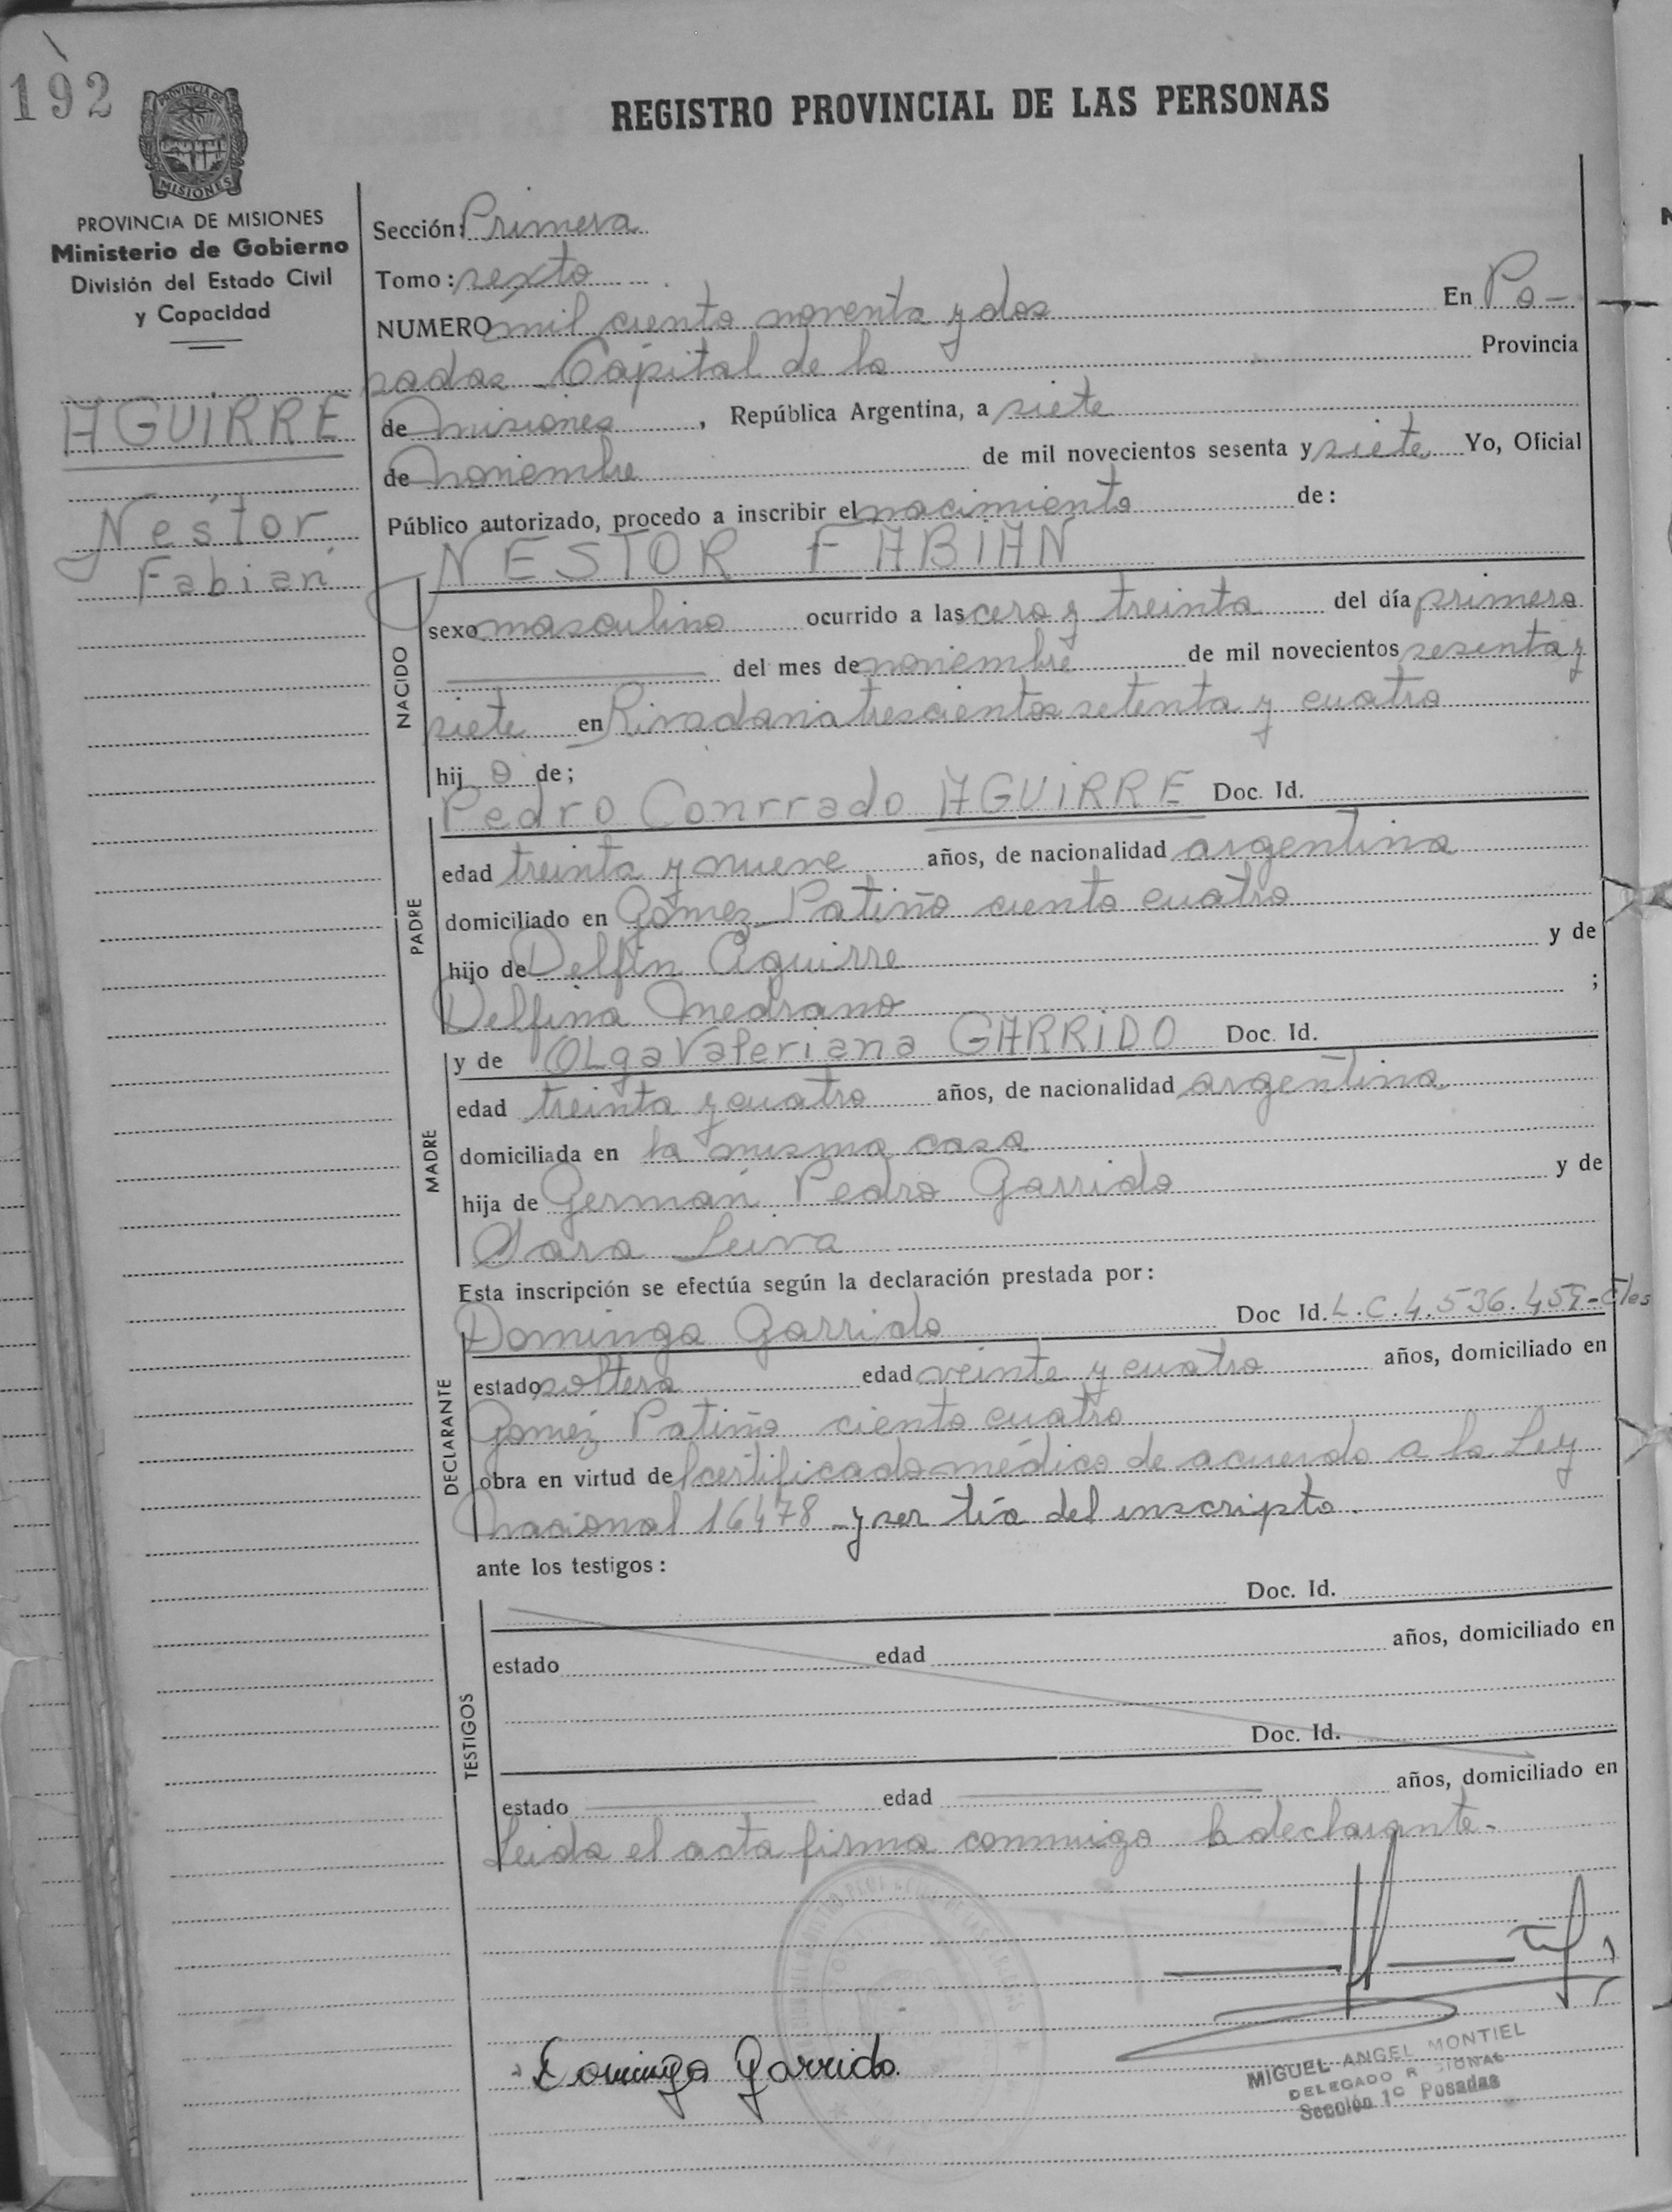 192
REGISTRO PROVINCIAL DE LAS PERSONAS
PROVINCIA DE
MISIONES
PROVINCIA DE MISIONES
Ministerio de Gobierno
División del Estado Civil
y Capacidad
AGUIRRE
Nestor
Fabián
Sección: Primera
Tomo: sexto
NUMERO mil ciento noventa y dos En Po-
sadas Capital de la Provincia
de Misiones, República Argentina, a siete
de Noviembre de mil novecientos sesenta y siete Yo, Oficial
Público autorizado, procedo a inscribir el nacimiento de:
NESTOR FABIAN
NACIDO
sexo masculino ocurrido a las cero y treinta del día primero
del mes de noviembre de mil novecientos sesenta y
siete en Rivadavia trescientos setenta y cuatro
hijo de;
PADRE
Pedro Conrrado AGUIRRE Doc. Id.
edad treinta y nueve años, de nacionalidad argentina
domiciliado en Gómez Patiño ciento cuatro
hijo de Delfin Aguirre y de
Delfina Medrano ;
MADRE
y de OLga Valeriana GARRIDO Doc. Id.
edad treinta y cuatro años, de nacionalidad argentina
domiciliada en la misma casa
hija de Germán Pedro Garrido y de
Sara Leiva
Esta inscripción se efectúa según la declaración prestada por:
DECLARANTE
Dominga Garrido Doc Id. L.C.4.536.459-Ctes
estado soltera edad veinte y cuatro años, domiciliado en
Gomez Patiño ciento cuatro
obra en virtud del certificado médico de acuerdo a la Ley
Nacional 16478 - y ser tía del inscripto.
ante los testigos:
TESTIGOS
Doc. Id.
estado edad años, domiciliado en
Doc. Id.
estado edad años, domiciliado en
Leida el acta firma conmigo la declarante.-
Dominga Garrido.
MIGUEL ANGEL MONTIEL
DELEGADO
Sección 1º Posadas